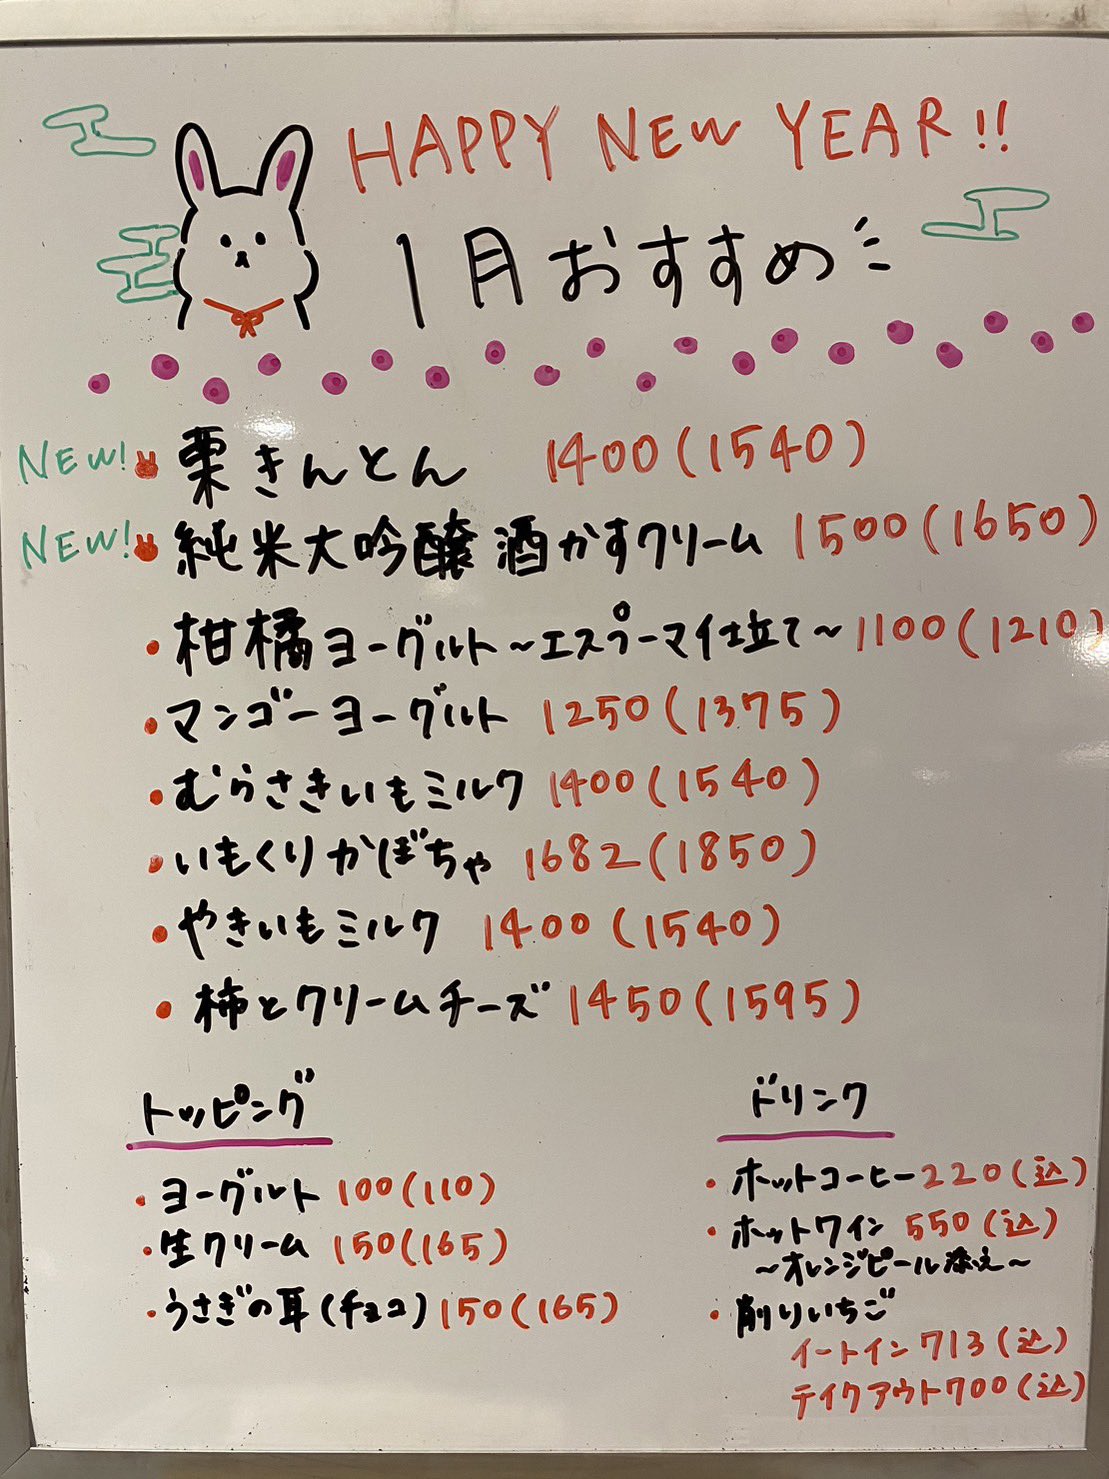 HAPPY NEW YEAR!!
1月おすすめ
NEW! 栗きんとん 1400(1540)
NEW! 純米大吟醸 酒かすクリーム 1500(1650)
・柑橘ヨーグルト~エスプーマ仕立て~1100(1210)
・マンゴーヨーグルト 1250(1375)
・むらさきいもミルク 1400(1540)
・いもくりかぼちゃ 1682(1850)
・やきいもミルク 1400(1540)
・柿とクリームチーズ 1450(1595)
トッピング
・ヨーグルト 100(110)
・生クリーム 150(165)
・うさぎの耳(チョコ) 150(165)
ドリンク
・ホットコーヒー 220(込)
・ホットワイン 550(込)
~オレンジピール添え~
・削りいちご
イートイン 713(込)
テイクアウト 700(込)